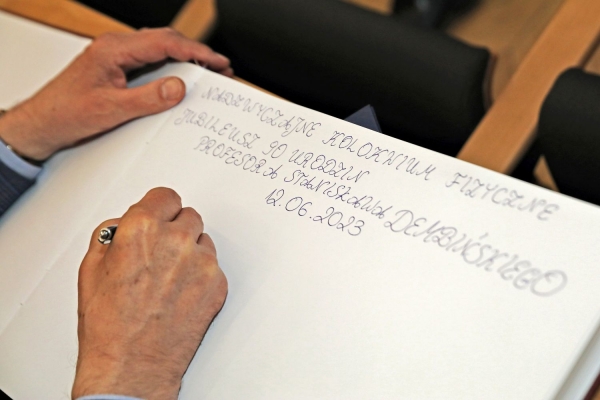 NADZWYCZAJNE KOLOKWIUM FIZYCZNE
JUBILEUSZ 90 URODZIN
PROFESORA STANISŁAWA DEMBIŃSKIEGO
12.06.2023